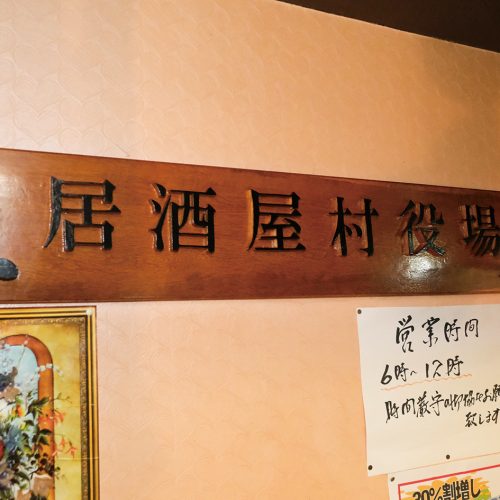 居酒屋村役場
営業時間
6時〜12時
時間厳守の御協力お願
致します
30%割増し